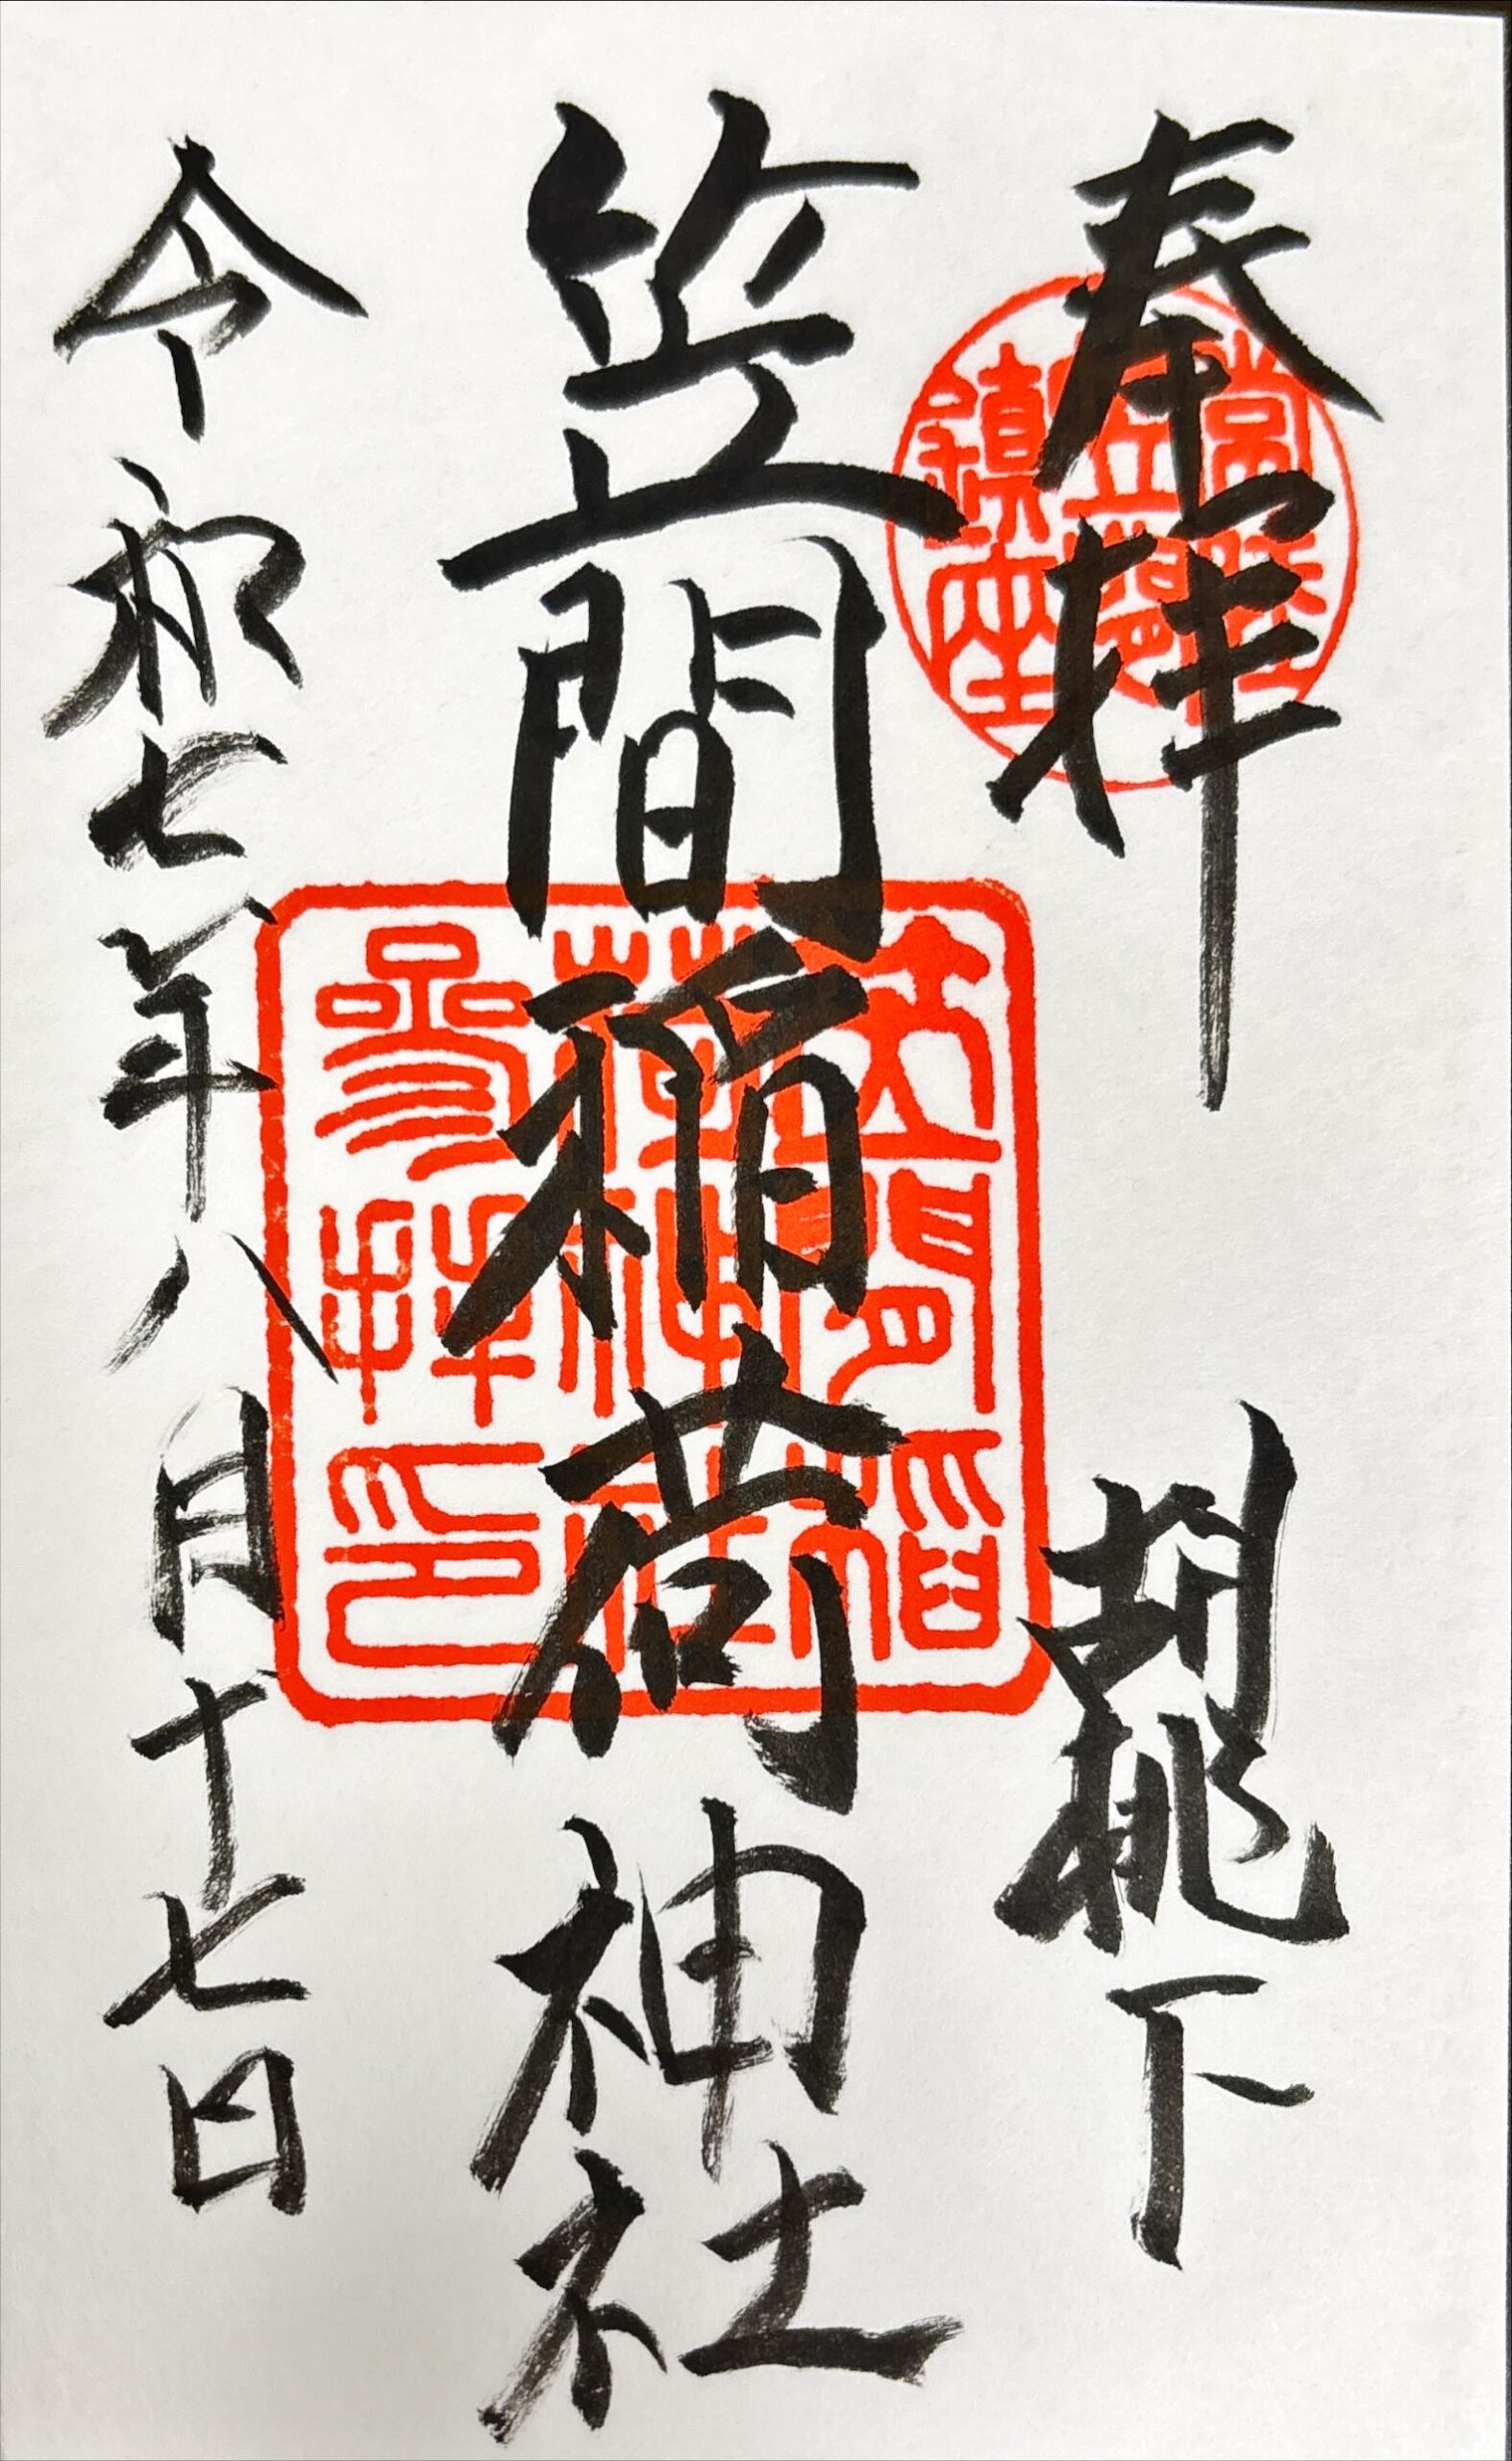 奉拝
胡桃下
笠間稲荷神社
令和七年八月十七日
常陸笠間鎮座
笠間稲荷神社参拝印